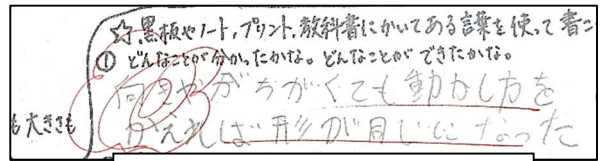 ☆黒板やノート,プリント,教科書にかいてある言葉を使って書こ
① どんなことが分かったかな。どんなことができたかな。
向きがちがくても動かし方を
も大きさも
かえれば形が同じになった